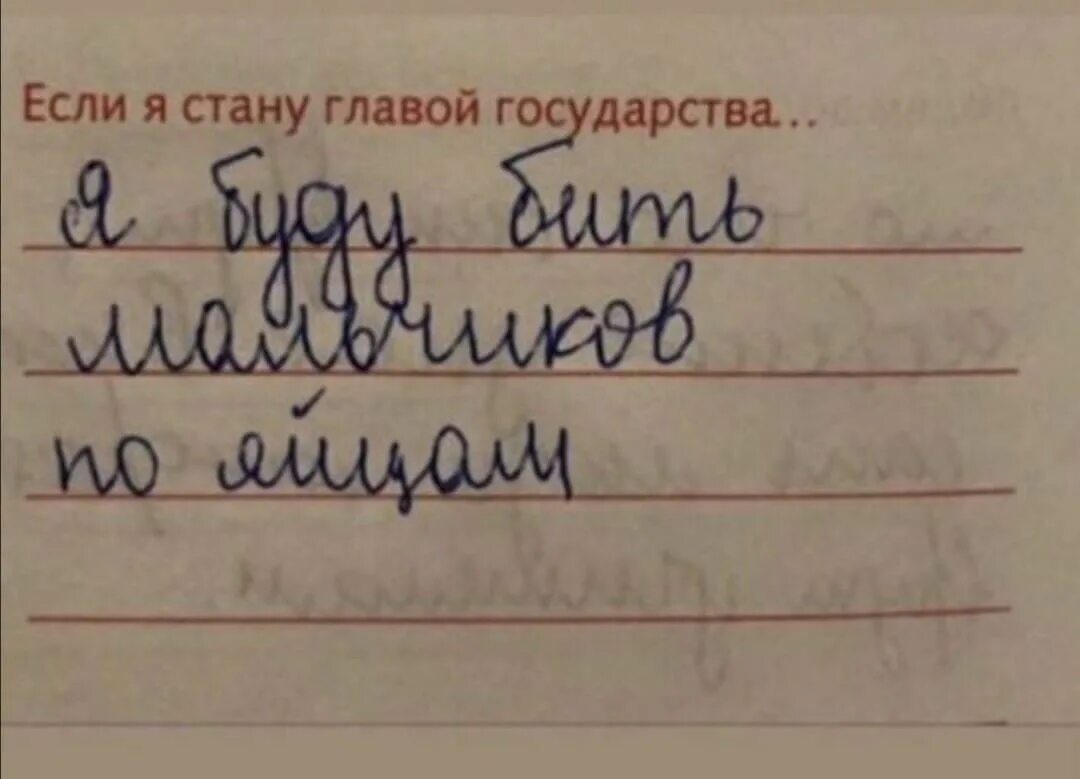 Если я стану главой государства...
Я буду бить
мальчиков
по яйцам